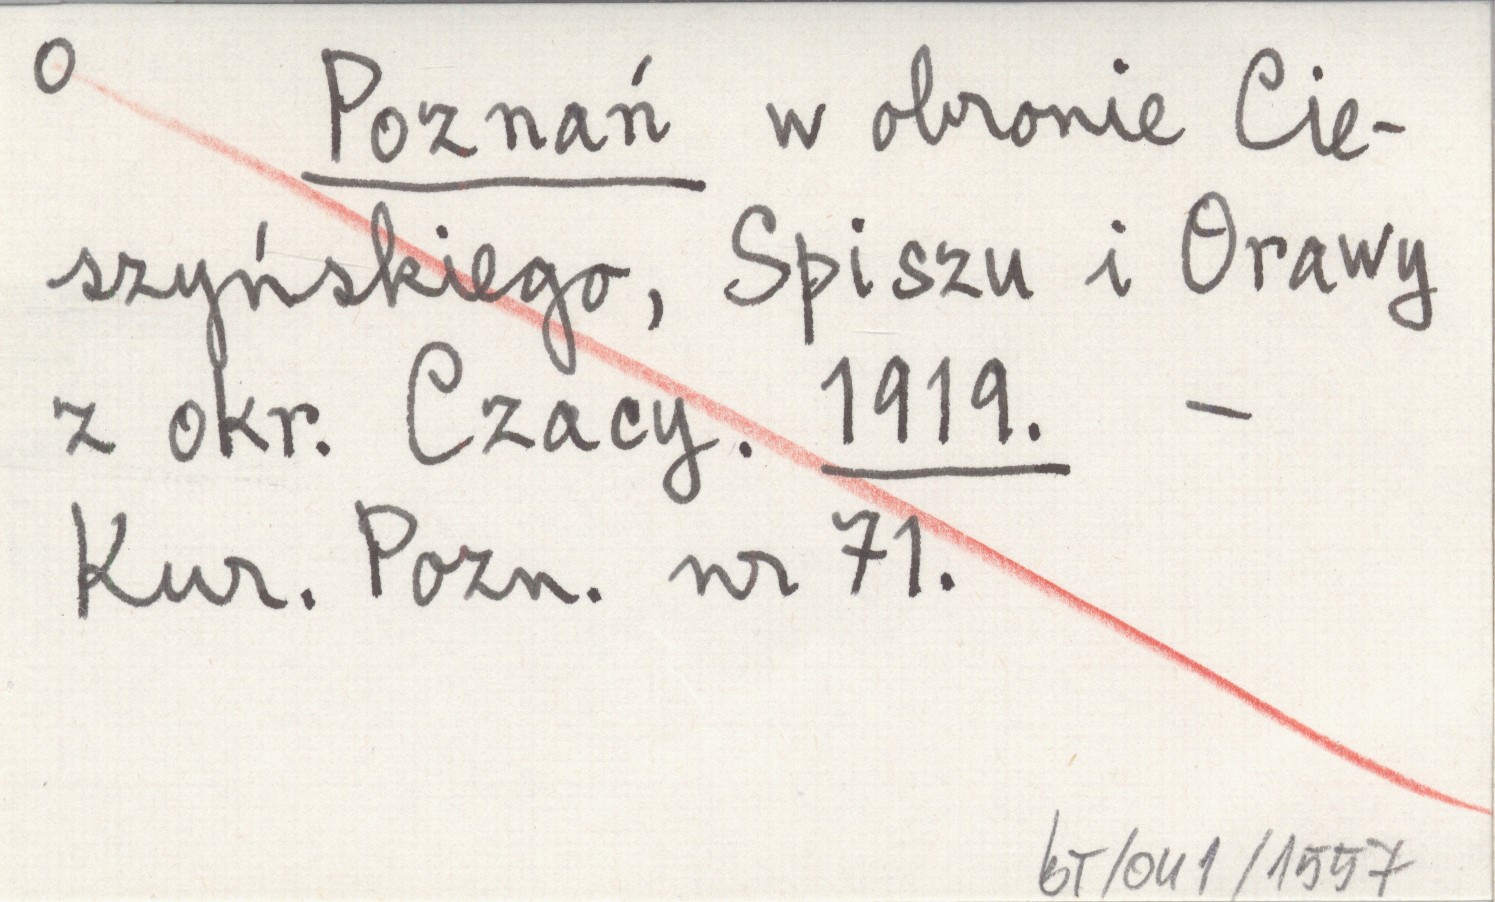 O Poznań w obronie Cie-
szyńskiego, Spiszu i Orawy
z okr. Czacy. 1919. –
Kur. Pozn. nr 71.
bT/041/1557